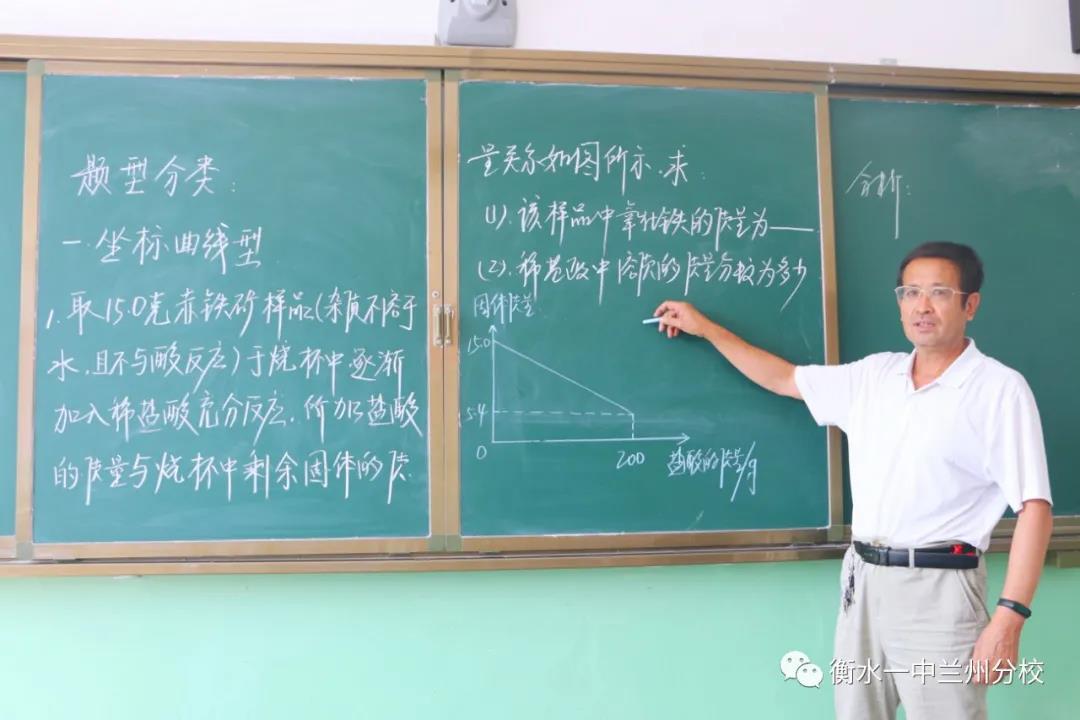 题型分类:
一.坐标曲线型
1.取15.0克赤铁矿样品(杂质不溶于
水,且不与酸反应)于烧杯中逐渐
加入稀盐酸充分反应.所加盐酸
的质量与烧杯中剩余固体的质
量关系如图所示.求:
(1).该样品中氧化铁的质量为——
(2).稀盐酸中溶质的质量分数为多少
固体质量
15.0
5.4
0
200
盐酸的质量/g
分析:
衡水一中兰州分校